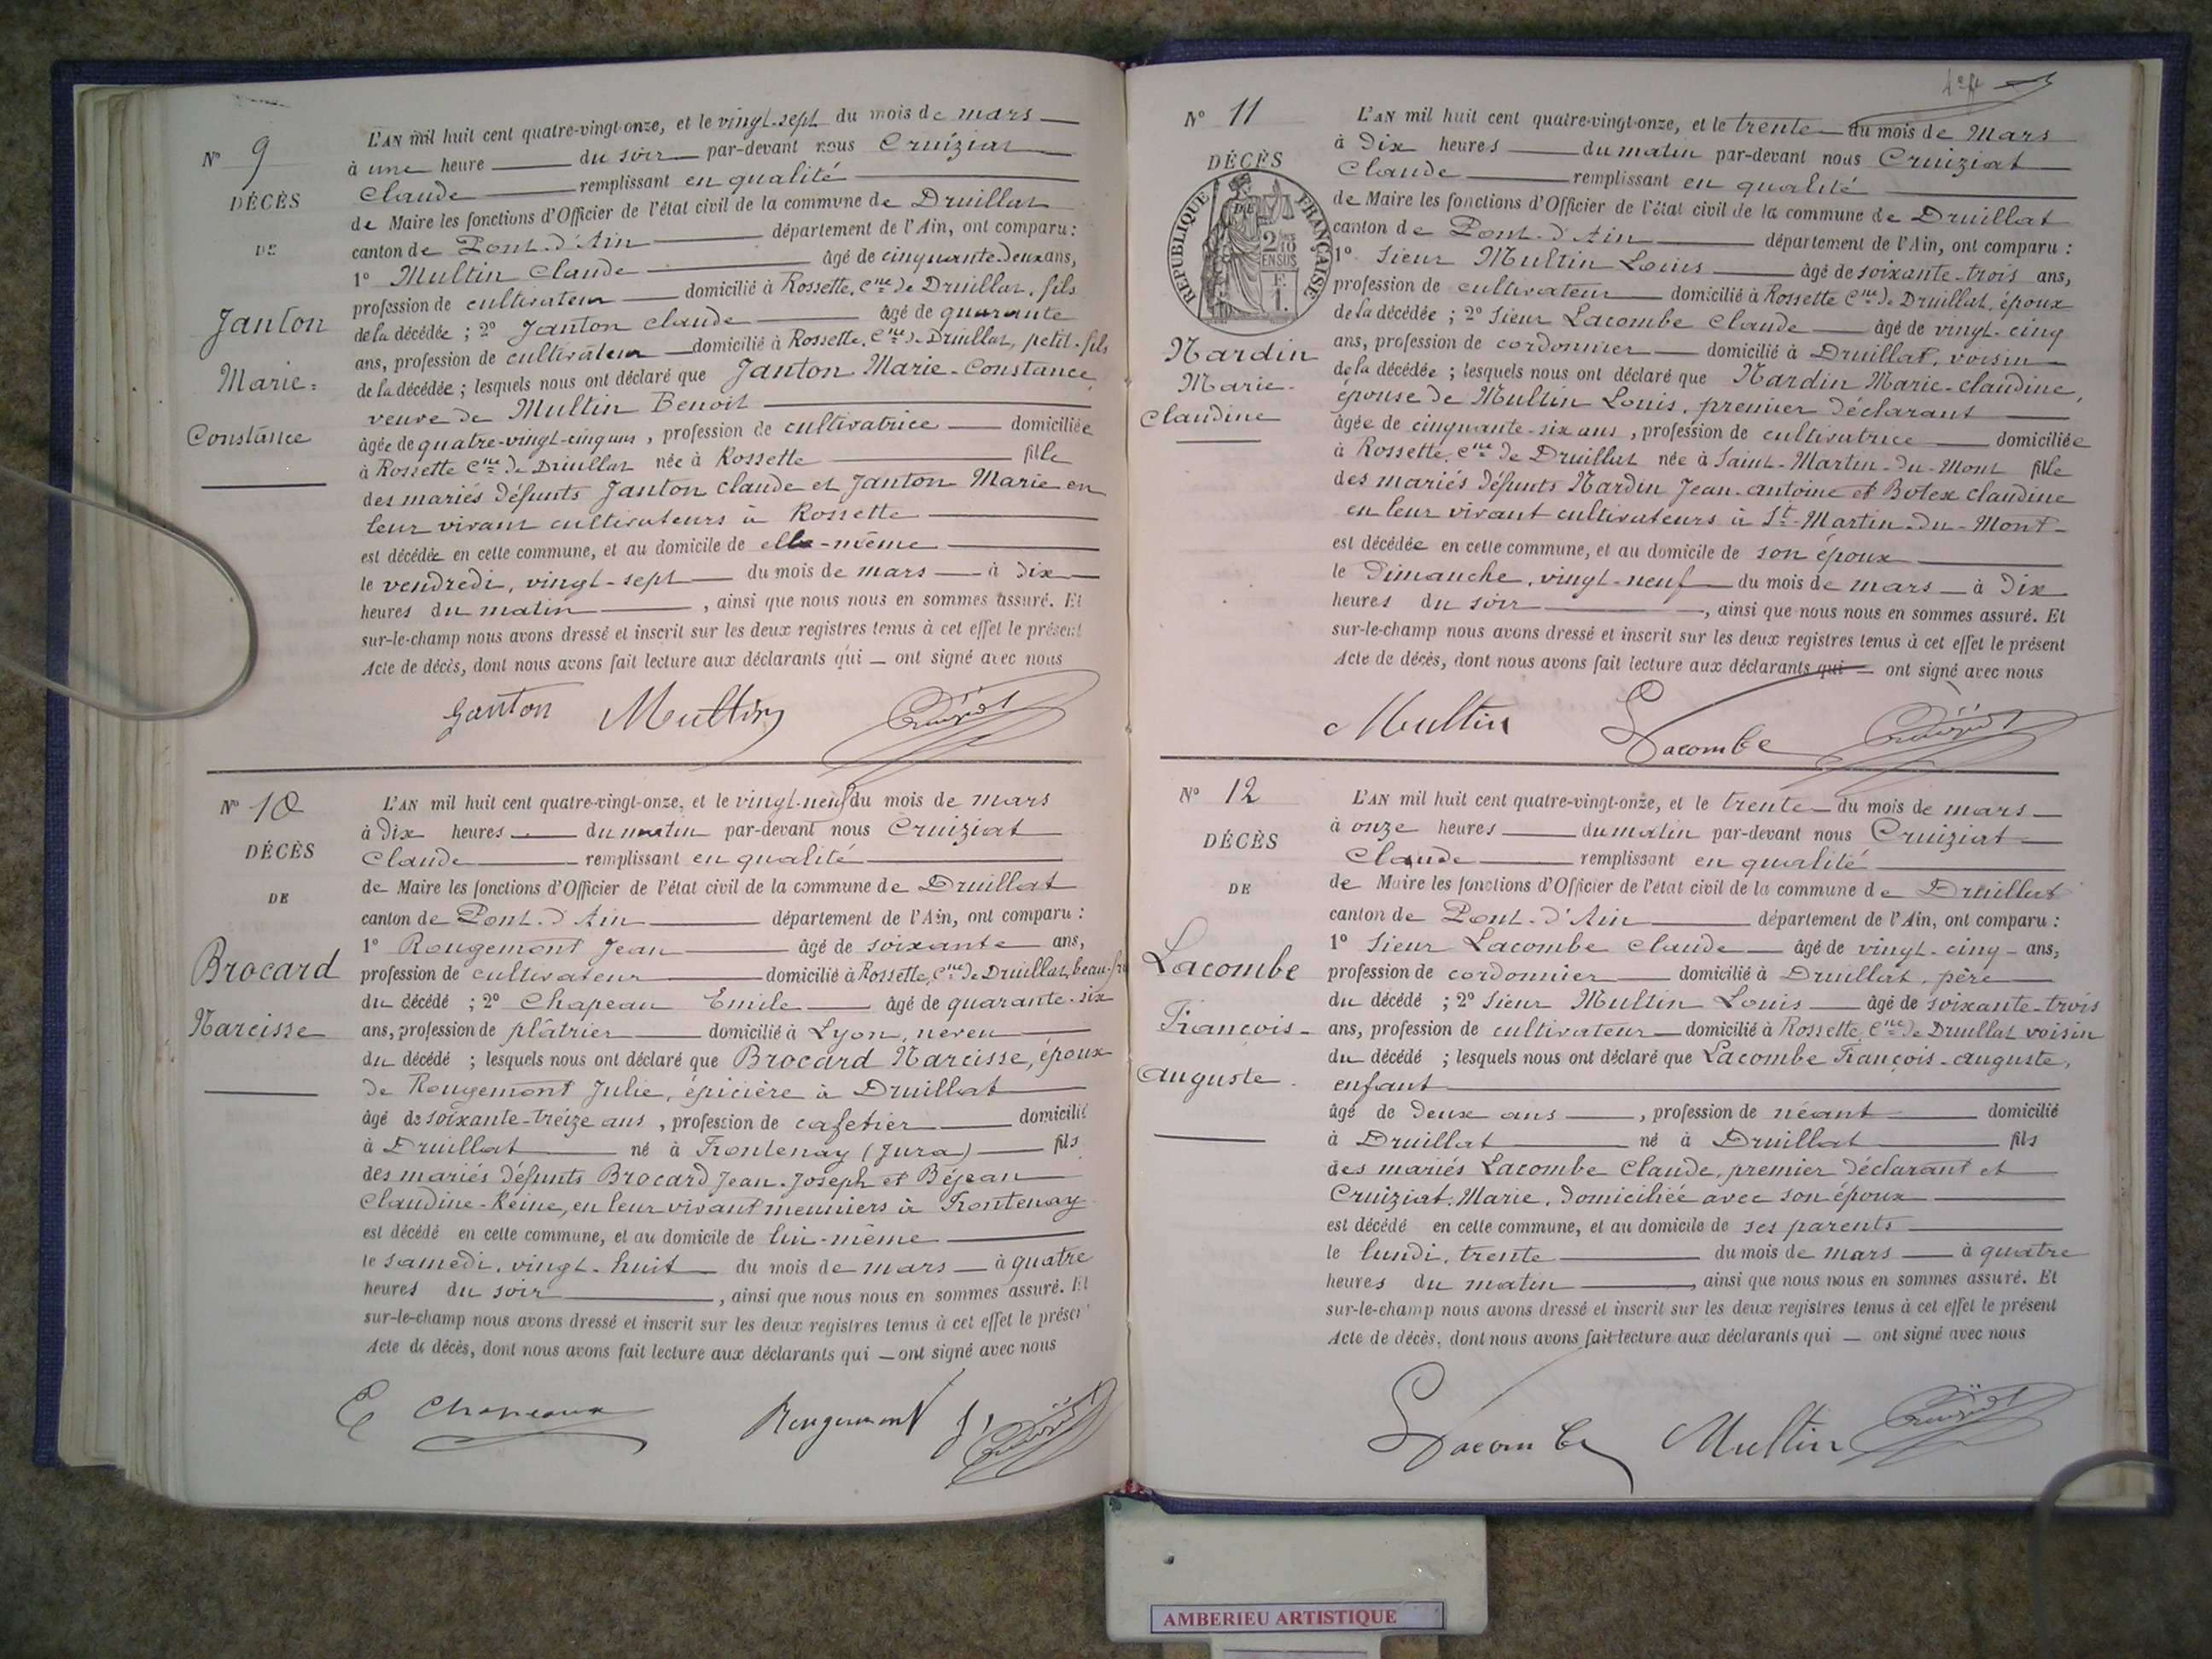 N° 9
DÉCÈS
DE
Janton
Marie-
Constance
L'AN mil huit cent quatre-vingt-onze, et le vingt-sept du mois de mars
à une heure du soir par-devant nous Cruiziat
Claude remplissant en qualité
de Maire les fonctions d'Officier de l'état civil de la commune de Druillat
canton de Pont-d'Ain département de l'Ain, ont comparu :
1° Multin Claude âgé de cinquante-deux ans,
profession de cultivateur domicilié à Rossette, Cne de Druillat, fils
de la décédée ; 2° Janton Claude âgé de quarante
ans, profession de cultivateur domicilié à Rossette, Cne de Druillat, petit-fils
de la décédée ; lesquels nous ont déclaré que Janton Marie-Constance,
veuve de Multin Benoit
âgée de quatre-vingt-cinq ans, profession de cultivatrice domiciliée
à Rossette Cne de Druillat née à Rossette fille
des mariés défunts Janton Claude et Janton Marie en
leur vivant cultivateurs à Rossette
est décédée en cette commune, et au domicile de elle-même
le vendredi, vingt-sept du mois de mars à dix
heures du matin, ainsi que nous nous en sommes assuré. Et
sur-le-champ nous avons dressé et inscrit sur les deux registres tenus à cet effet le présent
Acte de décès, dont nous avons fait lecture aux déclarants qui — ont signé avec nous
Janton Multin Cruiziat
N° 10
DÉCÈS
DE
Brocard
Narcisse
L'AN mil huit cent quatre-vingt-onze, et le vingt-neuf du mois de mars
à dix heures du matin par-devant nous Cruiziat
Claude remplissant en qualité
de Maire les fonctions d'Officier de l'état civil de la commune de Druillat
canton de Pont-d'Ain département de l'Ain, ont comparu :
1° Rougemont Jean âgé de soixante ans,
profession de cultivateur domicilié à Rossette, Cne de Druillat, beau-fr
du décédé ; 2° Chapeau Emile âgé de quarante-six
ans, profession de plâtrier domicilié à Lyon, neveu
du décédé ; lesquels nous ont déclaré que Brocard Narcisse, époux
de Rougemont Julie, épicière à Druillat
âgé de soixante-treize ans, profession de cafetier domicilié
à Druillat né à Frontenay (Jura) fils
des mariés défunts Brocard Jean-Joseph et Béjean
Claudine-Reine, en leur vivant meuniers à Frontenay
est décédé en cette commune, et au domicile de lui-même
le samedi, vingt-huit du mois de mars à quatre
heures du soir, ainsi que nous nous en sommes assuré. Et
sur-le-champ nous avons dressé et inscrit sur les deux registres tenus à cet effet le présen
Acte de décès, dont nous avons fait lecture aux déclarants qui — ont signé avec nous
E Chapeaux Rougemont J Cruiziat
N° 11
DÉCÈS
RÉPUBLIQUE FRANÇAISE
DE
2/10 EN SUS
F. 1.
Nardin
Marie-
Claudine
L'AN mil huit cent quatre-vingt-onze, et le trente du mois de mars
à dix heures du matin par-devant nous Cruiziat
Claude remplissant en qualité
de Maire les fonctions d'Officier de l'état civil de la commune de Druillat
canton de Pont-d'Ain département de l'Ain, ont comparu :
1° Sieur Multin Louis âgé de soixante-trois ans,
profession de cultivateur domicilié à Rossette Cne de Druillat, époux
de la décédée ; 2° Sieur Lacombe Claude âgé de vingt-cinq
ans, profession de cordonnier domicilié à Druillat, voisin
de la décédée ; lesquels nous ont déclaré que Nardin Marie-Claudine,
épouse de Multin Louis, premier déclarant
âgée de cinquante-six ans, profession de cultivatrice domiciliée
à Rossette, Cne de Druillat née à Saint-Martin-du-Mont fille
des mariés défunts Nardin Jean-Antoine et Botex Claudine
en leur vivant cultivateurs à St-Martin-du-Mont
est décédée en cette commune, et au domicile de son époux
le dimanche, vingt-neuf du mois de mars à dix
heures du soir, ainsi que nous nous en sommes assuré. Et
sur-le-champ nous avons dressé et inscrit sur les deux registres tenus à cet effet le présent
Acte de décès, dont nous avons fait lecture aux déclarants qui — ont signé avec nous
Multin Lacombe Cruiziat
N° 12
DÉCÈS
DE
Lacombe
François-
Auguste
L'AN mil huit cent quatre-vingt-onze, et le trente du mois de mars
à onze heures du matin par-devant nous Cruiziat
Claude remplissant en qualité
de Maire les fonctions d'Officier de l'état civil de la commune de Druillat
canton de Pont-d'Ain département de l'Ain, ont comparu :
1° Sieur Lacombe Claude âgé de vingt-cinq ans,
profession de cordonnier domicilié à Druillat, père
du décédé ; 2° Sieur Multin Louis âgé de soixante-trois
ans, profession de cultivateur domicilié à Rossette, Cne de Druillat voisin
du décédé ; lesquels nous ont déclaré que Lacombe François-Auguste,
enfant
âgé de deux ans, profession de néant domicilié
à Druillat né à Druillat fils
des mariés Lacombe Claude, premier déclarant et
Cruiziat Marie, domiciliée avec son époux
est décédé en cette commune, et au domicile de ses parents
le lundi, trente du mois de mars à quatre
heures du matin, ainsi que nous nous en sommes assuré. Et
sur-le-champ nous avons dressé et inscrit sur les deux registres tenus à cet effet le présent
Acte de décès, dont nous avons fait lecture aux déclarants qui — ont signé avec nous
Lacombe Multin Cruiziat
AMBERIEU ARTISTIQUE